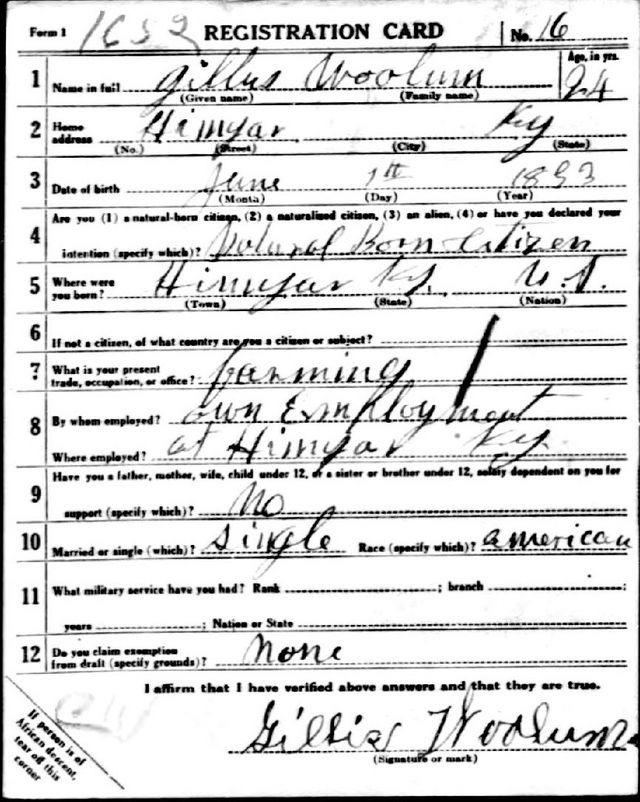 Form 1 1652 REGISTRATION CARD No. 16
1 Name in full Gillus Woolum Age, in yrs. 24
(Given name) (Family name)
2 Home address Himyar Ky
(No.) (Street) (City) (State)
3 Date of birth June 1th 1893
(Month) (Day) (Year)
Are you (1) a natural-born citizen, (2) a naturalized citizen, (3) an alien, (4) or have you declared your
4 intention (specify which)? Natural Born Citizen
5 Where were you born? Himyar Ky. U.S.
(Town) (State) (Nation)
6 If not a citizen, of what country are you a citizen or subject?
7 What is your present trade, occupation, or office? farming
8 By whom employed? own Employment
Where employed? at Himyar Ky
Have you a father, mother, wife, child under 12, or a sister or brother under 12, solely dependent on you for
9 support (specify which)? No
10 Married or single (which)? Single Race (specify which)? american
11 What military service have you had? Rank ; branch ;
years ; Nation or State
12 Do you claim exemption from draft (specify grounds)? None
I affirm that I have verified above answers and that they are true.
Gillis Woolum
(Signature or mark)
If person is of
African descent,
tear off this
corner